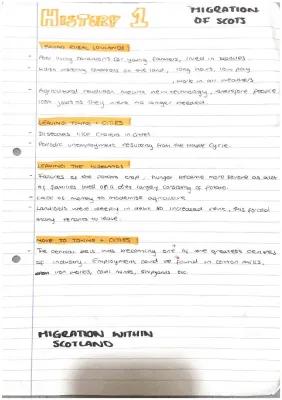 HISTORY 1
MIGRATION
OF SCOTS
LEAVING RURAL LOWLANDS
- Poor living conditions for young farmers, lived in bothies
- Harsh working conditions on the land, long hours, low pay
, work in all weathers
- Agricultural revolution means new technology, therefore people
lost jobs as they were no longer needed.
LEAVING TOWNS + CITIES
- Diseases like cholera in cities
- Periodic unemployment resulting from the Trade Cycle.
LEAVING THE HIGHLANDS
- Failures of the potato crop, hunger became more severe as lots
of families lived off a diet largely consisting of potato.
- Lack of money to modernise agriculture
- Landlords were heavily in debt so increased rents, this forced
many tenants to leave.
MOVE TO TOWNS + CITIES
- The central belt was becoming one of the greatest centres
of industry. Employment could be found in cotton mills,
iron works, coal mines, shipyards etc.
MIGRATION WITHIN
SCOTLAND